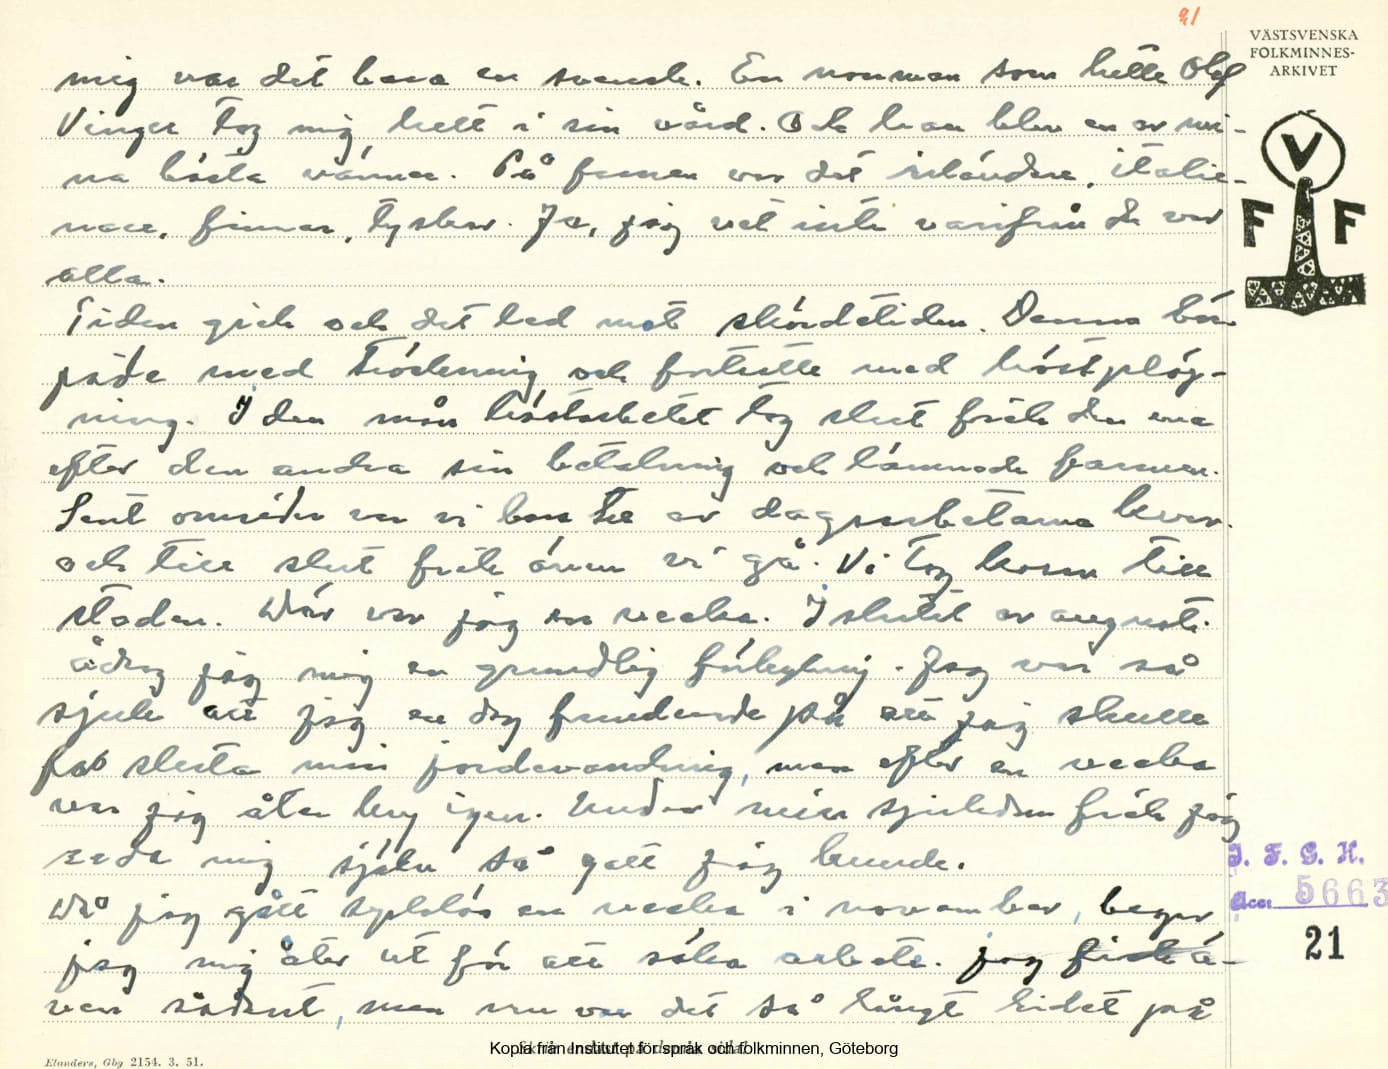 21
VÄSTSVENSKA
FOLKMINNES-
ARKIVET
mig var det bara en svensk. En norrman som hette Olaf
Vinger tog mig helt i sin vård. Och han blev en av mi-
na bästa vänner. På farmen var det irländare, italie-
nare, finnar, tyskar. Ja, jag vet inte varifrån de var
alla.
Tiden gick och det led mot skördetiden. Denna bör-
jade med tröskning och fortsatte med höstplög-
ning. I den mån höstarbetet tog slut fick den ena
efter den andra sin betalning och lämnade farmen.
Sent omsider var vi bara tre av dagsarbetarna kvar
och till slut fick även vi gå. Vi tog korn till
staden. Där var jag en vecka. I slutet av augusti
ådrog jag mig en grundlig förkylning. Jag var så
sjuk att jag en dag funderade på att jag skulle
få sluta min jordevandring, men efter en vecka
var jag åter kry igen. Under min sjukdom fick jag
reda mig själv så gott jag kunde.
Då jag gått sysslolös en vecka i november, begav
jag mig åter ut för att söka arbete. jag fick ä-
ven sådant, men nu var det så långt lidet på
V
F F
I. F. G. H.
Acc. 5663
21
Kopia från Institutet för språk och folkminnen, Göteborg
Elanders, Gbg 2154. 3. 51.